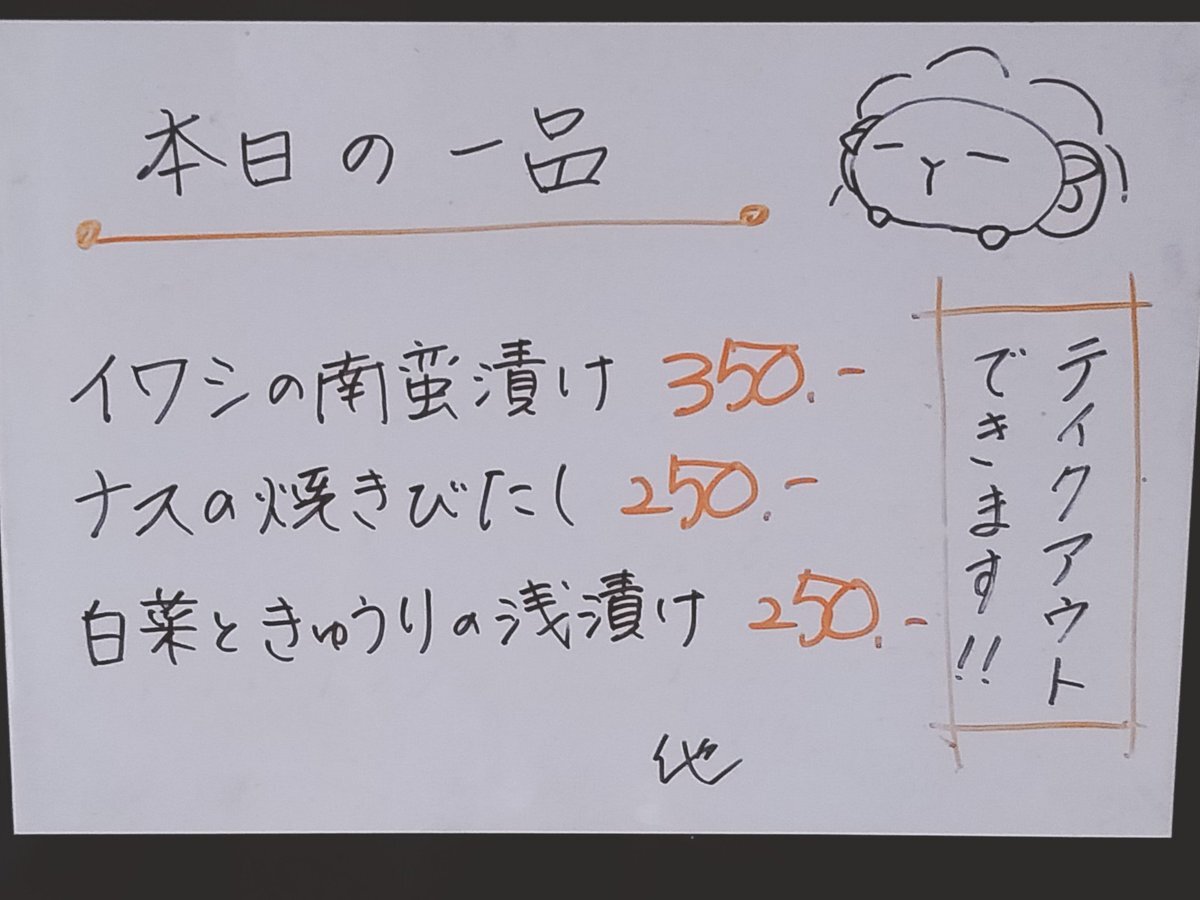 本日の一品
イワシの南蛮漬け 350.-
ナスの焼きびたし 250.-
白菜ときゅうりの浅漬け 250.-
他
テイクアウト
できます!!